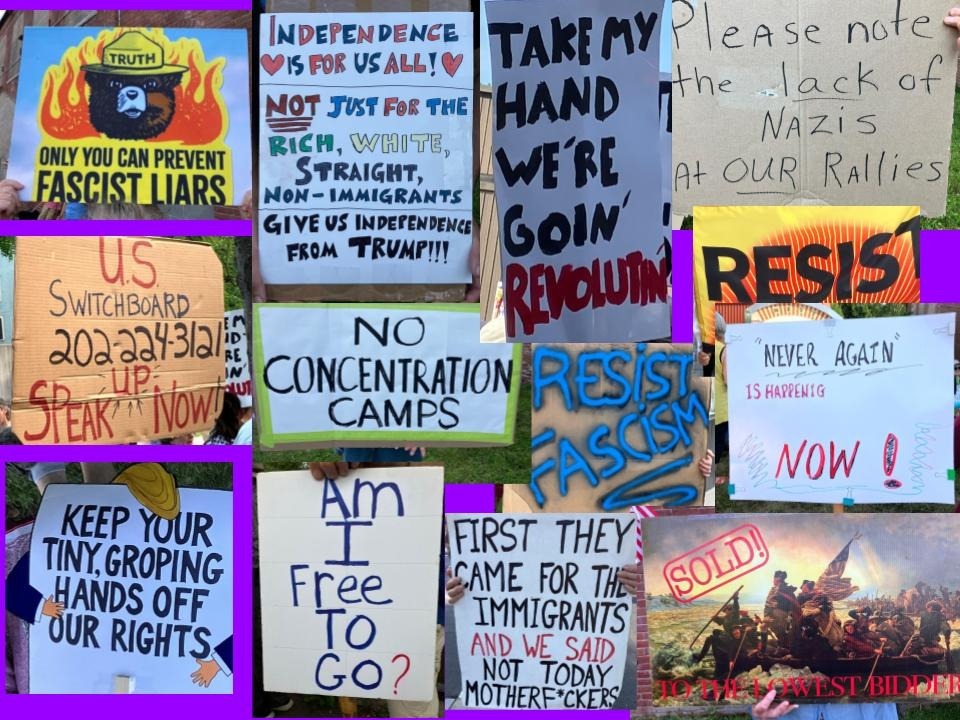 TRUTH
ONLY YOU CAN PREVENT
FASCIST LIARS
INDEPENDENCE
IS FOR US ALL!
NOT JUST FOR THE
RICH, WHITE,
STRAIGHT,
NON-IMMIGRANTS
GIVE US INDEPENDENCE
FROM TRUMP!!!
TAKE MY
HAND
WE'RE
GOIN'
REVOLUTIN'
Please note
the lack of
NAZIS
At OUR Rallies
U.S.
SWITCHBOARD
202-224-3121
SPEAK UP NOW!
NO
CONCENTRATION
CAMPS
RESIST
FASCISM
RESIST
"NEVER AGAIN"
IS HAPPENIG
NOW!
KEEP YOUR
TINY, GROPING
HANDS OFF
OUR RIGHTS
Am
I
Free
TO
GO?
FIRST THEY
CAME FOR THE
IMMIGRANTS
AND WE SAID
NOT TODAY
MOTHERF*CKERS
SOLD!
TO THE LOWEST BIDDER